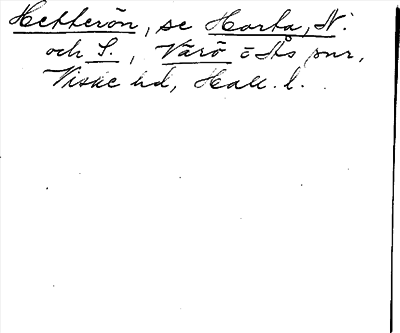 Hetterön, se Horta, N.
och S., Värö o Ås snr,
Viske hd, Hall. l.